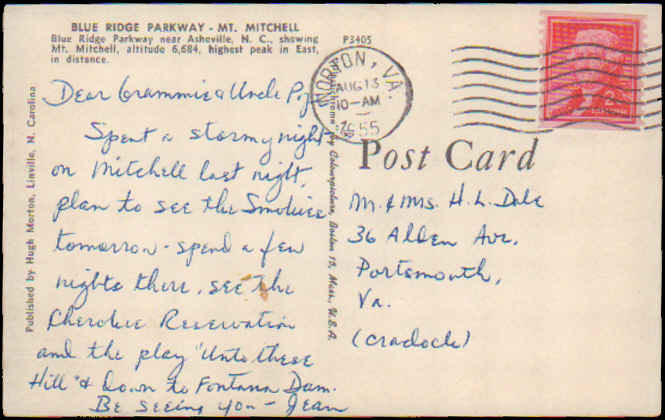 BLUE RIDGE PARKWAY - MT. MITCHELL
Blue Ridge Parkway near Asheville, N. C., showing
Mt. Mitchell, altitude 6,684, highest peak in East,
in distance.
P3405
Dear Grammie & Uncle
Spent a stormy night
on Mitchell last night,
plan to see the Smokies
tomorrow - spend a few
nights there, see the
Cherokee Reservation
and the play "Unto these
Hill" & down to Fontana Dam.
Be seeing you - Jean
Published by Hugh Morton, Linville, N. Carolina
by Colourpicture, Boston 15, Mass., U.S.A.
NORTON, VA.
AUG 13
10-AM
1955
2¢
Post Card
M. & Mrs. H. L. Dale
36 Alden Ave.
Portsmouth,
Va.
(Cradock)